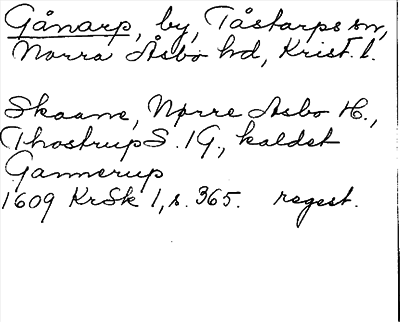 Gånarp, by, Tåstarps sn,
Norra Åsbo hd, Krist. l.
Skaane, Nørre Asbo H.,
Thostrup S. 1 G, kaldet
Gannerup
1609 KrSk 1, s. 365. regest.